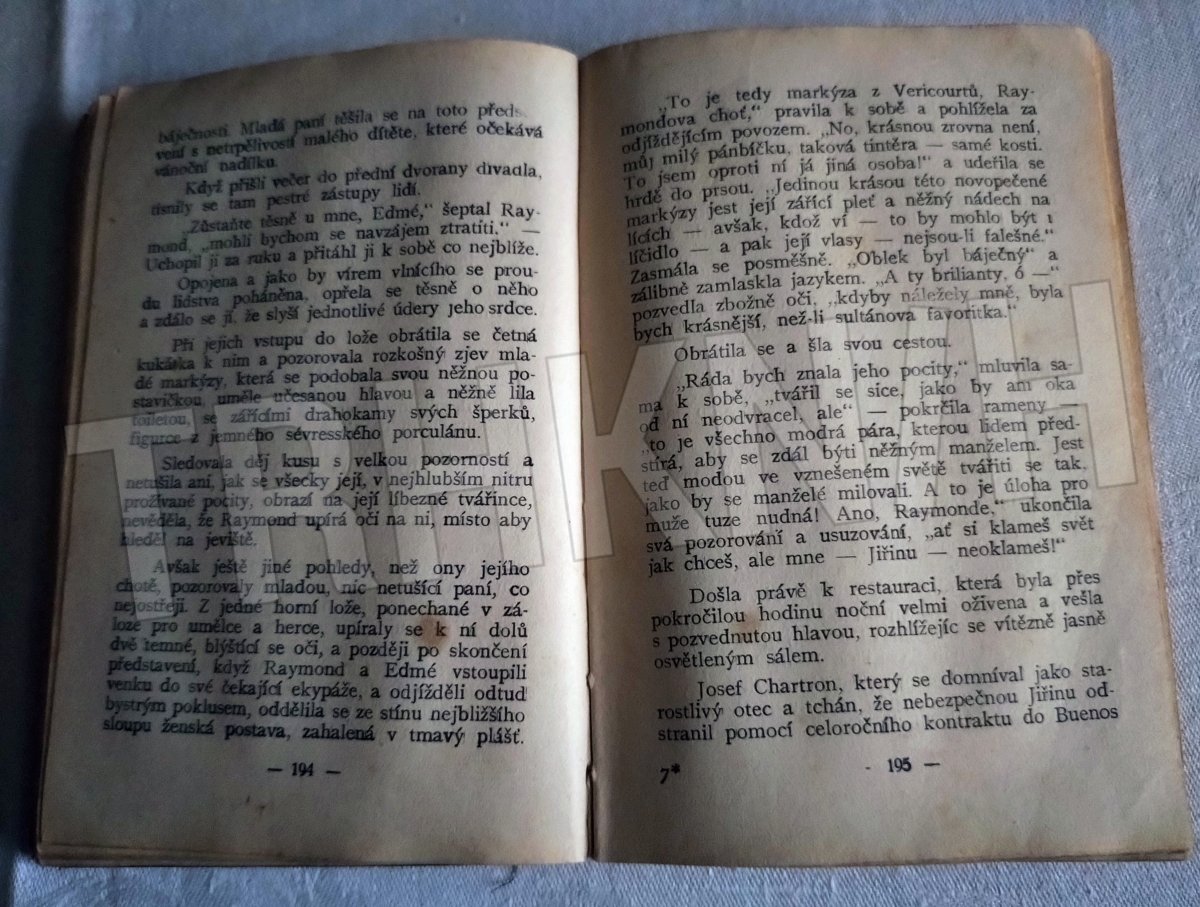 báječností. Mladá paní těšila se na toto předs
vení s netrpělivostí malého dítěte, které očekává
vánoční nadílku.
Když přišli večer do přední dvorany divadla,
tísnily se tam pestré zástupy lidí.
„Zůstaňte těsně u mne, Edmé,“ šeptal Ray-
mond, „mohli bychom se navzájem ztratíti.“ —
Uchopil ji za ruku a přitáhl ji k sobě co nejblíže.
Opojena a jako by vírem vlnícího se prou-
du lidstva poháněna, opřela se těsně o něho
a zdálo se jí, že slyší jednotlivé údery jeho srdce.
Při jejich vstupu do lože obrátila se četná
kukátka k nim a pozorovala rozkošný zjev mla-
dé markýzy, která se podobala svou něžnou po-
stavičkou, uměle učesanou hlavou a něžně lila
toiletou, se zářícími drahokamy svých šperků,
figurce z jemného sévresského porculánu.
Sledovala děj kusu s velkou pozorností a
netušila ani, jak se všecky její, v nejhlubším nitru
prožívané pocity, obrazí na její líbezné tvářince,
nevěděla, že Raymond upírá oči na ni, místo aby
hleděl na jeviště.
Avšak ještě jiné pohledy, než ony jejího
chotě, pozorovaly mladou, nic netušící paní, co
nejostřeji. Z jedné horní lože, ponechané v zá-
loze pro umělce a herce, upíraly se k ní dolů
dvě temné, blýštící se oči, a později po skončení
představení, když Raymond i Edmé vstoupili
venku do své čekající ekypáže, a odjížděli odtud
bystrým poklusem, oddělila se ze stínu nejbližšího
sloupu ženská postava, zahalená v tmavý plášť.
— 194 —
„To je tedy markýza z Vericourtů, Ray-
mondova choť,“ pravila k sobě a pohlížela za
odjíždějícím povozem. „No, krásnou zrovna není,
můj milý pánbíčku, taková tintěra — samé kosti.
To jsem oproti ní já jiná osoba!“ a udeřila se
hrdě do prsou. „Jedinou krásou této novopečené
markýzy jest její zářící pleť a něžný nádech na
lících — avšak, kdož ví — to by mohlo být i
líčidlo — a pak její vlasy — nejsou-li falešné.“
Zasmála se posměšně. „Oblek byl báječný“ a
zálibně zamlaskla jazykem. „A ty brilianty, ó —“
pozvedla zbožně oči, „kdyby náležely mně, byla
bych krásnější, než-li sultánova favoritka.“
Obrátila se a šla svou cestou.
„Ráda bych znala jeho pocity,“ mluvila sa-
ma k sobě, „tvářil se sice, jako by ani oka
od ní neodvracel, ale“ — pokrčila rameny —
„to je všechno modrá pára, kterou lidem před-
stírá, aby se zdál býti něžným manželem. Jest
teď modou ve vznešeném světě tvářiti se tak,
jako by se manželé milovali. A to je úloha pro
muže tuze nudná! Ano, Raymonde,“ ukončila
svá pozorování a usuzování, „ať si klameš svět
jak chceš, ale mne — Jiřinu — neoklameš!“
Došla právě k restauraci, která byla přes
pokročilou hodinu noční velmi oživena a vešla
s pozvednutou hlavou, rozhlížejíc se vítězně jasně
osvětleným sálem.
Josef Chartron, který se domníval jako sta-
rostlivý otec a tchán, že nebezpečnou Jiřinu od-
stranil pomocí celoročního kontraktu do Buenos
7*
- 195 —